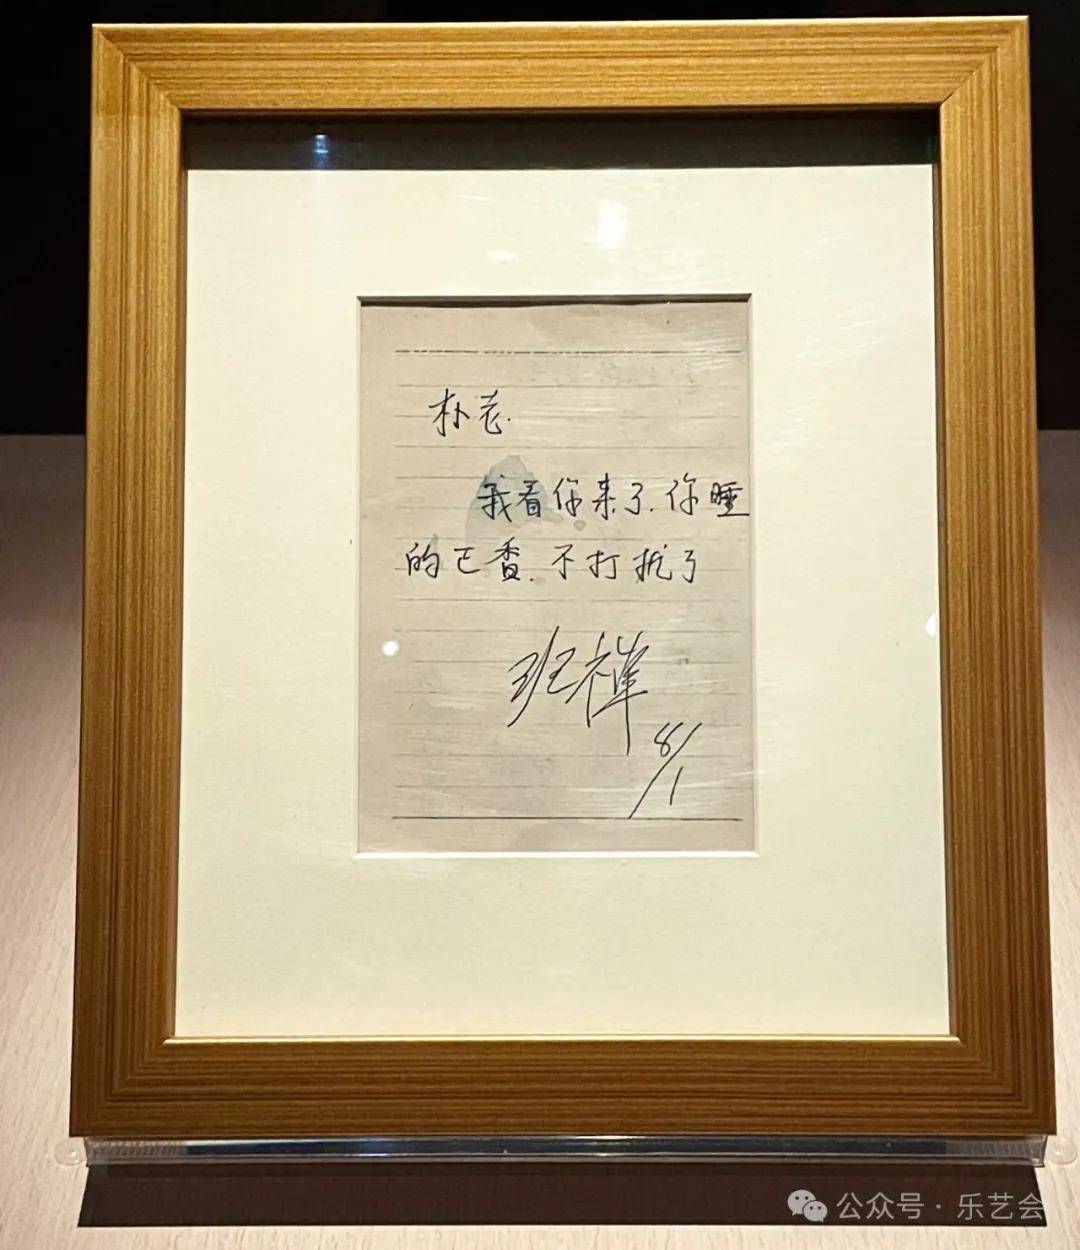 朴老.
我看你来了.你睡
的已香.不打扰了
班禅
8/1
公众号·乐艺会